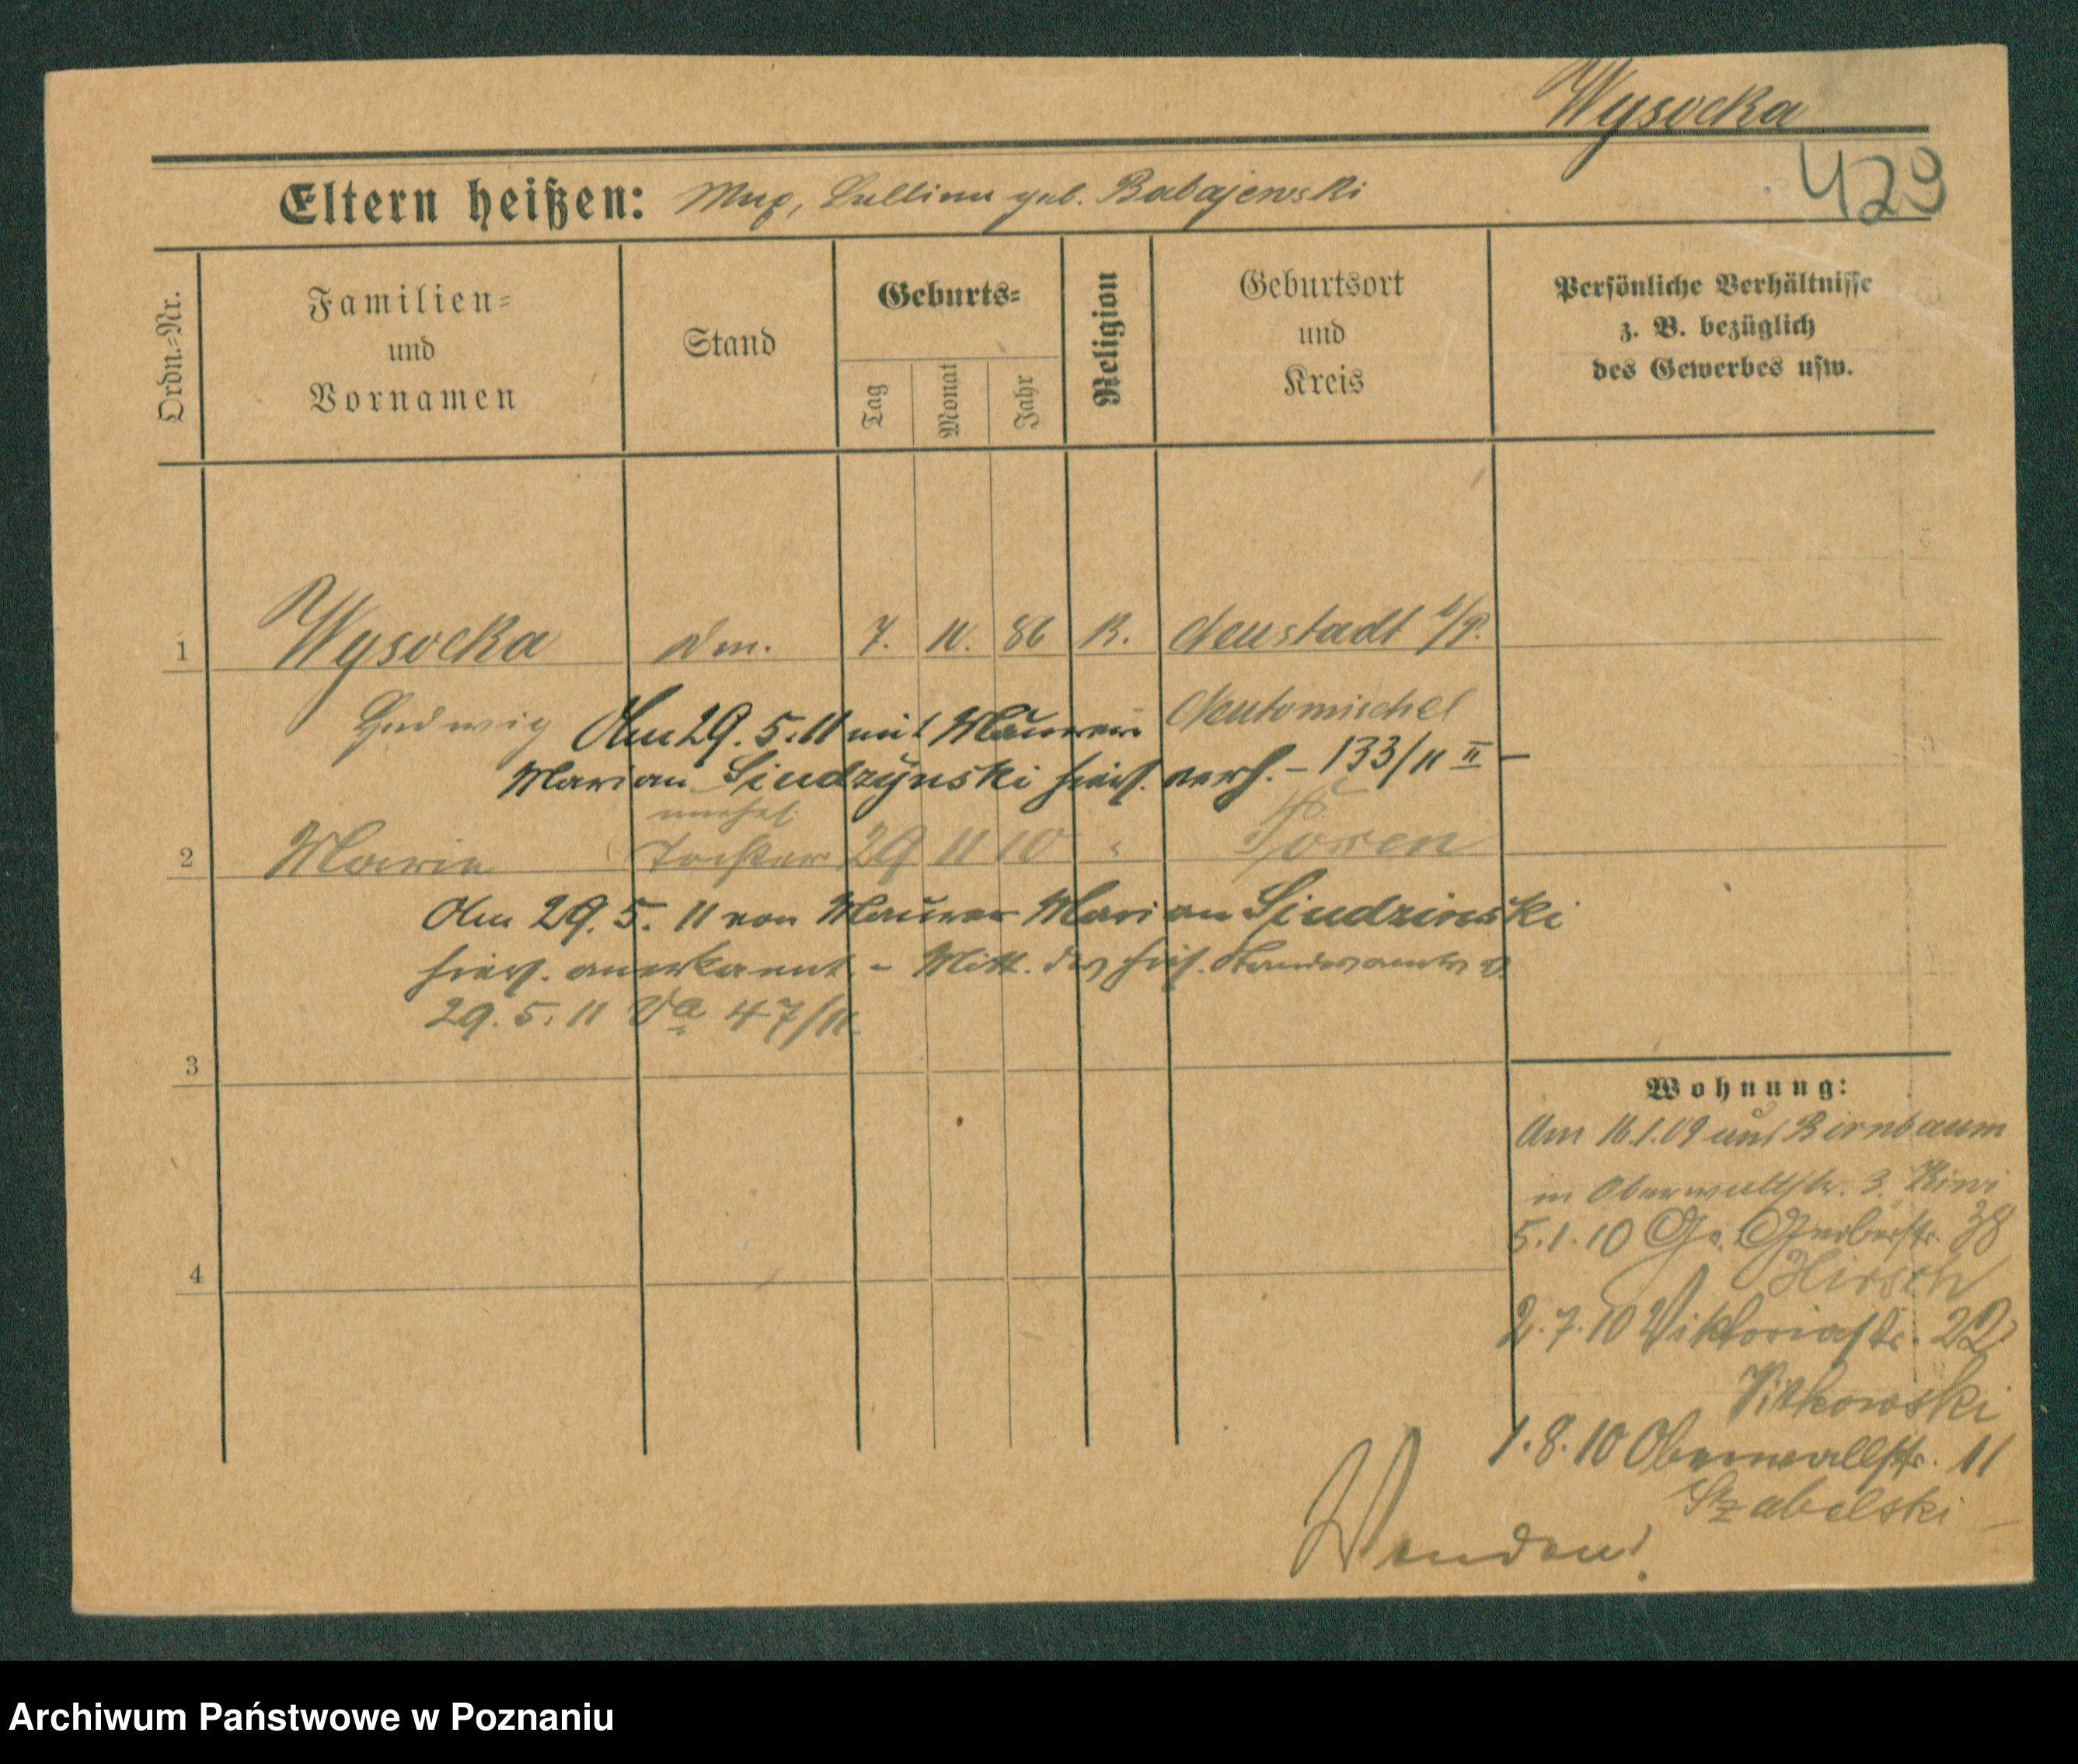 Wysocka
429
Eltern heißen: Max, geb. Babajewski
Ordn.=Nr.
Familien=
und
Vornamen
Stand
Geburts=
Tag
Monat
Jahr
Religion
Geburtsort
und
Kreis
Persönliche Verhältnisse
z. B. bezüglich
des Gewerbes usw.
1 Wysocka 7. 86 K. Neustadt b/P.
Hedwig Neutomischel
Am 29. 5. 11 mit Maurer
Marian Siudzynski hies. verh. – 133/11 II –
unehel.
2 Maria Tochter 29 11 10 " Posen
Am 29. 5. 11 von Maurer Marian Siudzinski
hies. anerkannt. - Mitt. des hies. Standesamts v.
29. 5. 11 Va 47/11
3
4
Wohnung:
Am 16.1.09 aus Birnbaum
in Oberwallstr. 3.
5.1.10 Gr. Gerberstr. 38
Hirsch
2.7.10 Viktoriastr. 22
Witkowski
1.8.10 Oberwallstr. 11
Szabelski
Wenden!
Archiwum Państwowe w Poznaniu